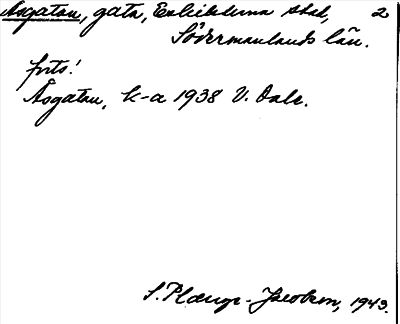 Åsgatan, gata, Eskilstuna stad, 2
Södermanlands län.
forts!
Åsgatan, k-a 1938 V. Dalr.
S. Plænge-Jacobson, 1943.